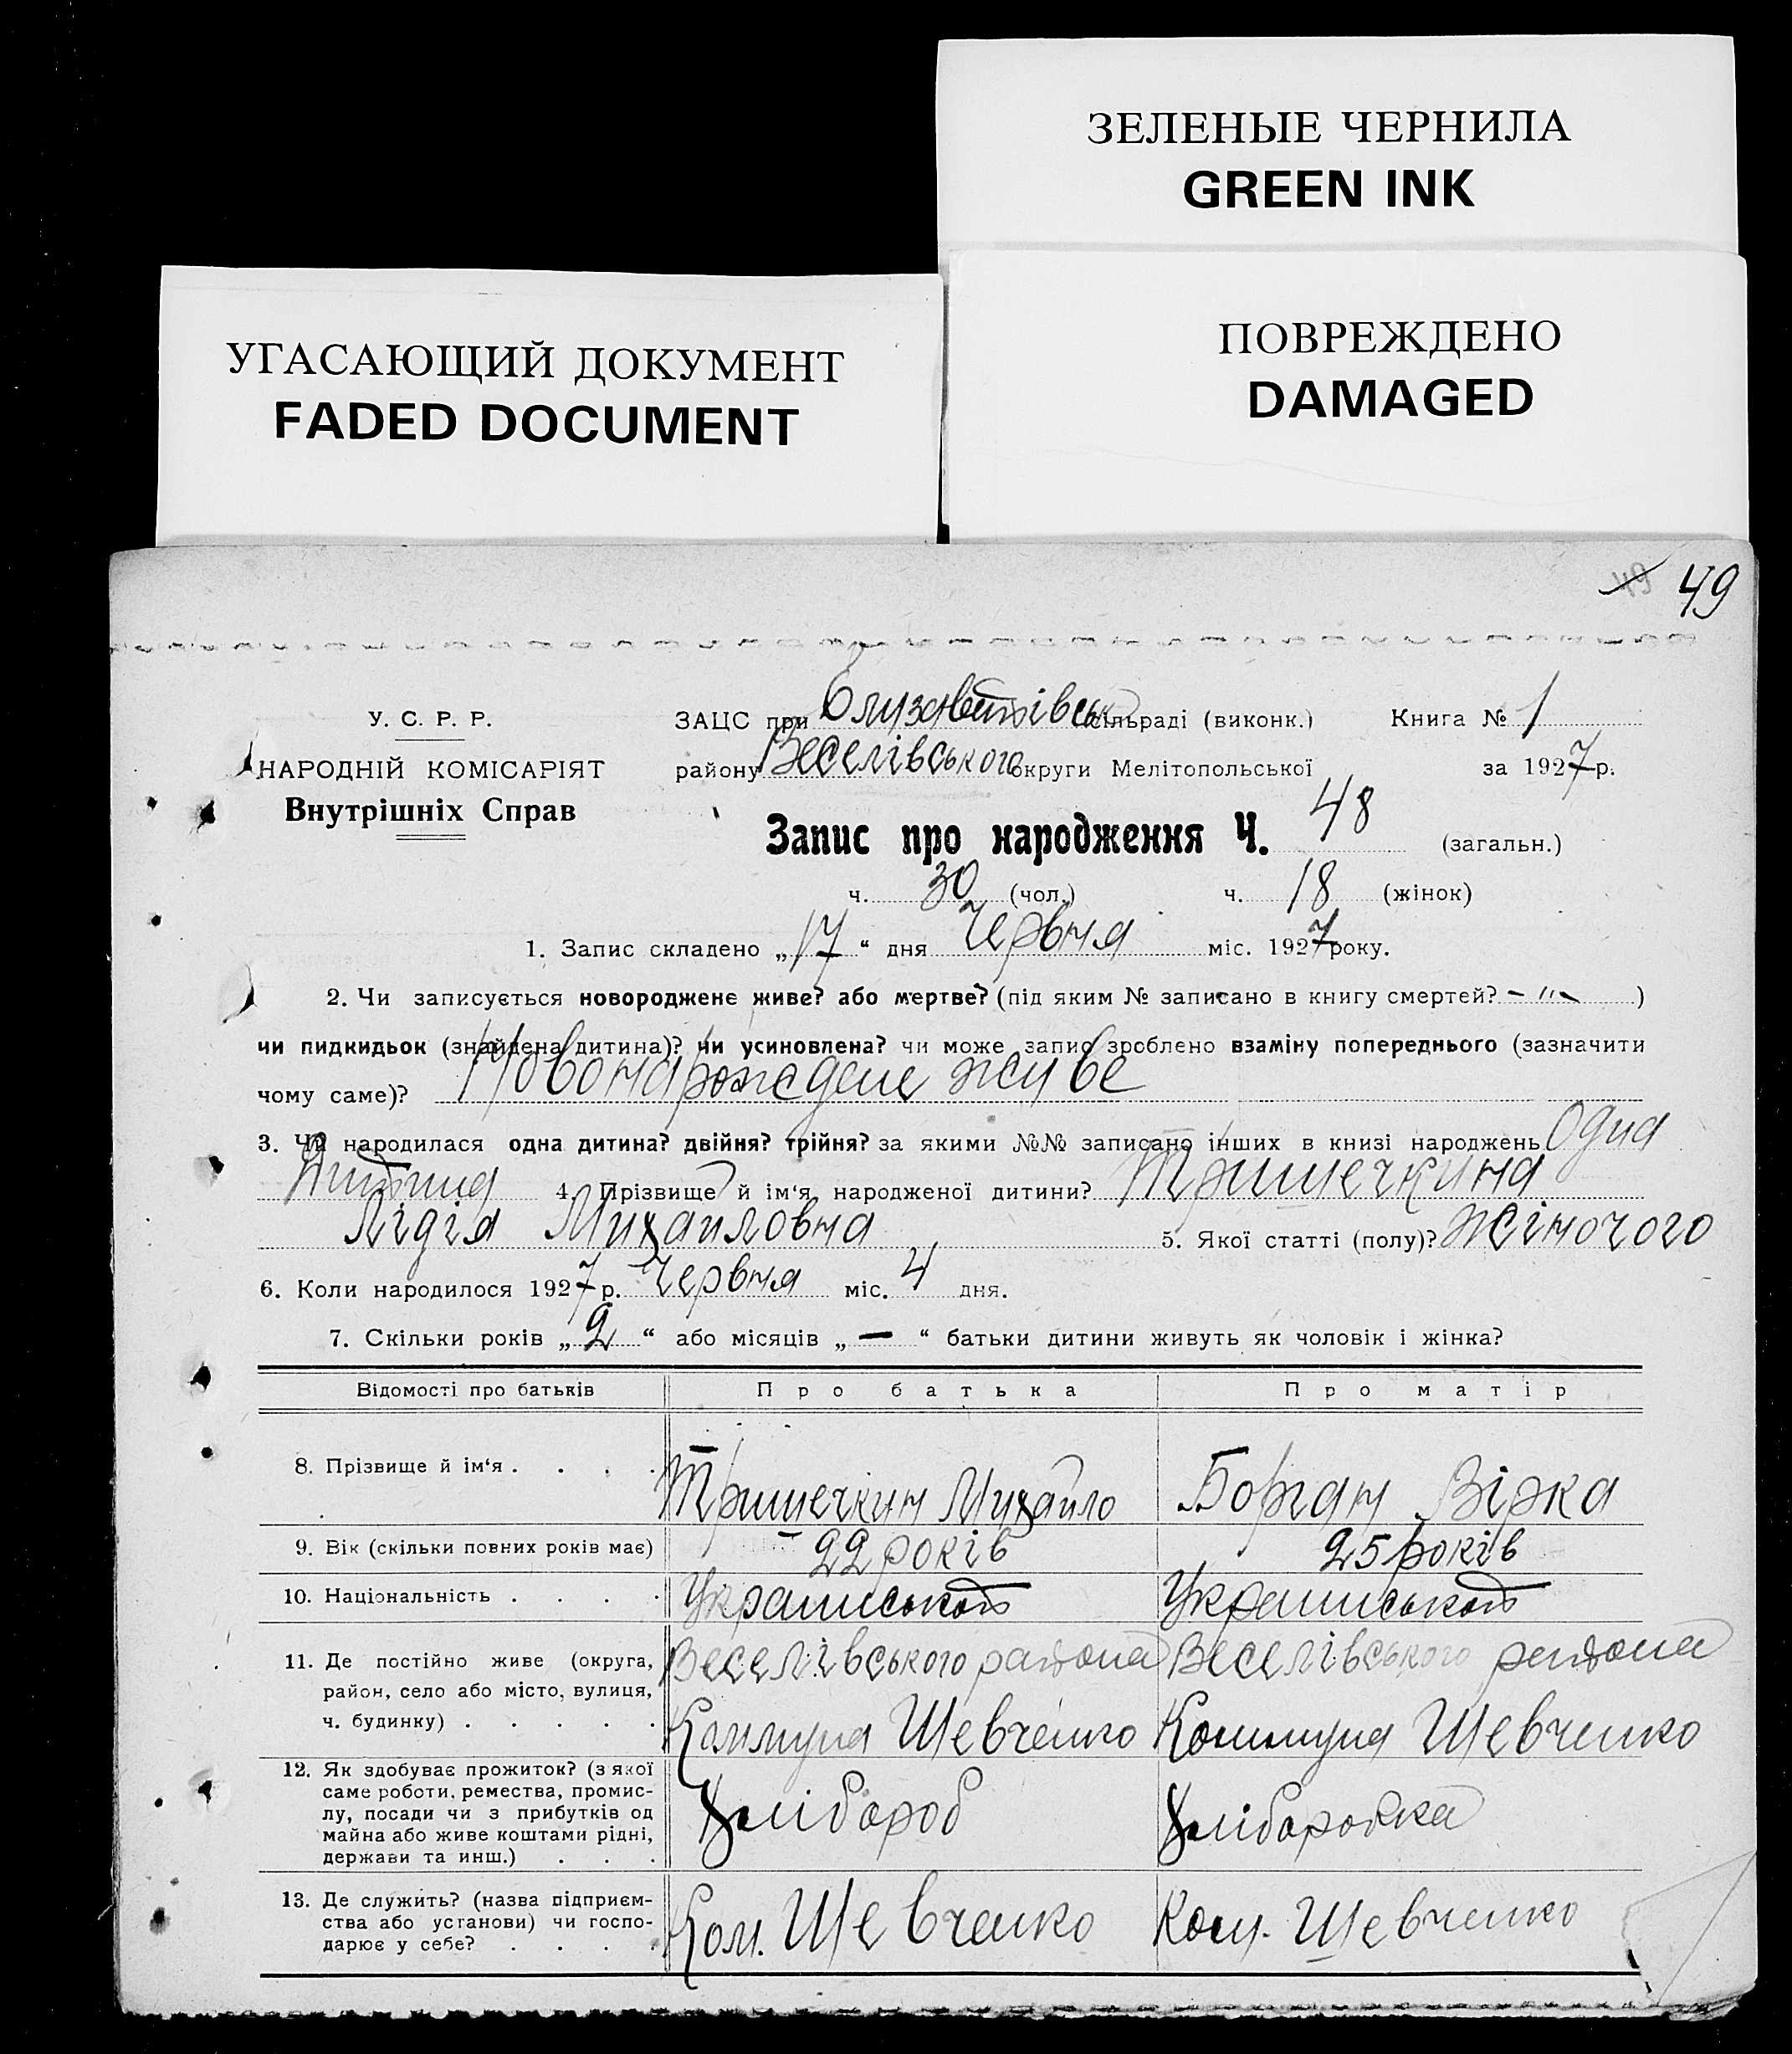 ЗЕЛЕНЫЕ ЧЕРНИЛА
GREEN INK
УГАСАЮЩИЙ ДОКУМЕНТ
FADED DOCUMENT
ПОВРЕЖДЕНО
DAMAGED
49 49
У. С. Р. Р.
НАРОДНІЙ КОМІСАРІЯТ
Внутрішніх Справ
ЗАЦС при Єлизаветівськ сільраді (виконк.) Книга № 1
району Веселівського округи Мелітопольської за 1927 р.
Запис про народження Ч. 48 (загальн.)
ч. 30 (чол.) ч. 18 (жінок)
1. Запис складено „17“ дня Червня міс. 1927 року.
2. Чи записується новороджене живе? або мертве? (під яким № записано в книгу смертей? – " – )
чи пидкидьок (знайдена дитина)? чи усиновлена? чи може запис зроблено взаміну попереднього (зазначити
чому саме)? Новонарождене живе
3. Чи народилася одна дитина? двійня? трійня? за якими №№ записано інших в книзі народжень Одна
дитина 4. Прізвище й ім‘я народженої дитини? Тришечкина
Лідія Михайловна 5. Якої статті (полу)? жіночого
6. Коли народилося 1927 р. Червня міс. 4 дня.
7. Скільки років „2“ або місяців „—“ батьки дитини живуть як чоловік і жінка?
Відомості про батьків Про батька Про матір
8. Прізвище й ім‘я . . . . Тришечкин Михайло Борган Вірка
9. Вік (скільки повних років має) 22 років 25 років
10. Національність . . . . Українськой Українськой
11. Де постійно живе (округа, Веселівського района Веселівського района
район, село або місто, вулиця,
ч. будинку) . . . . . Коммуна Шевченко Коммуна Шевченко
12. Як здобуває прожиток? (з якої
саме роботи, ремества, промис-
лу, посади чи з прибутків од Хлібороб Хліборобка
майна або живе коштами рідні,
держави та инш.) . . .
13. Де служить? (назва підприєм-
ства або установи) чи госпо- Ком. Шевченко Ком. Шевченко
дарює у себе? . . . .